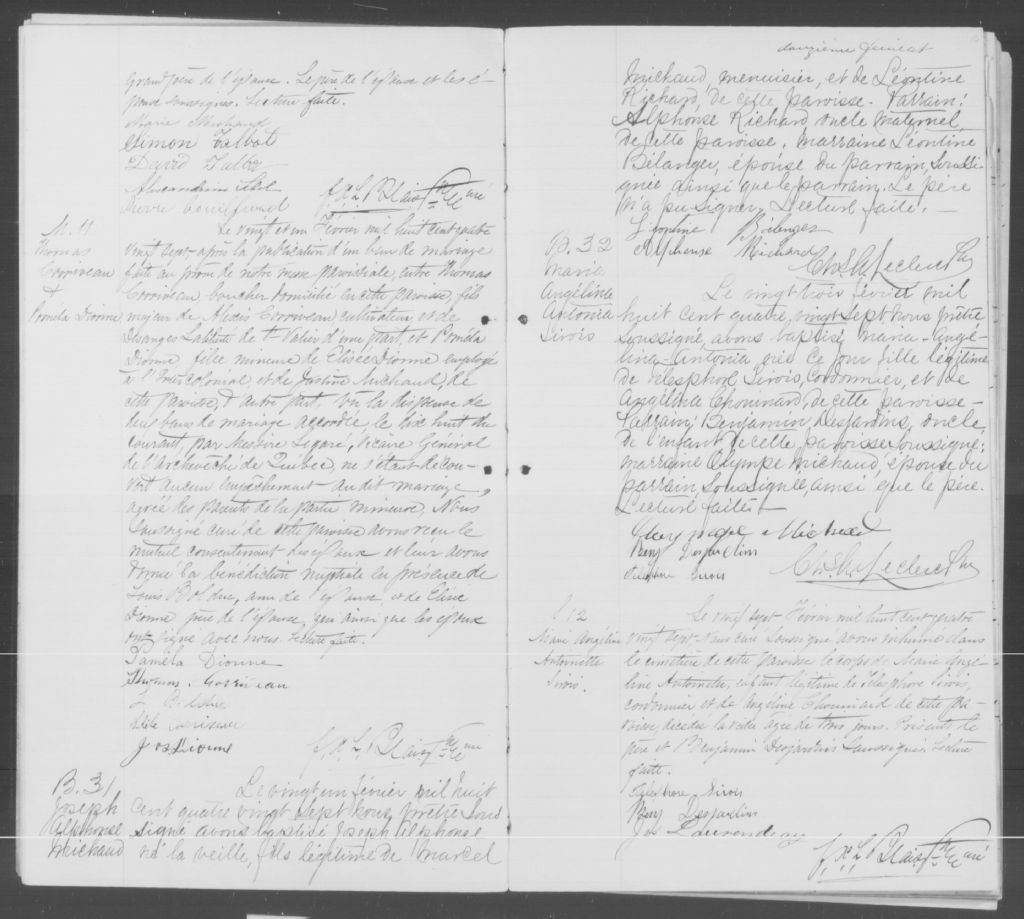 Grand père de l'épouse. Le père de l'épouse et les é-
poux soussignés. Lecture faite.
Marie Michaud
Simon Talbot
David Talbot
Pierre
F. X. L. Blais Ptre Curé
M. 11
Thomas
Corriveau
&
Paméla Dionne
Le vingt et un Février mil huit cent quatre
vingt sept, après la publication d'un ban de mariage
faite au prone de notre messe paroissiale, entre Thomas
Corriveau, boucher domicilié en cette paroisse, fils
majeur de Alexis Corriveau cultivateur et de
Desanges Labrecque de St Valier d'une part, et Paméla
Dionne fille mineure de Elisée Dionne employé
à l'Intercolonial, et de Justine Michaud, de
cette paroisse, d'autre part, vu la dispense de
deux bans de mariage accordée, le dix huit du
courant, par Messire Legaré, Vicaire Général
de l'Archevêché de Québec, ne s'étant décou-
vert aucun empêchement au dit mariage,
agréé des parents de la partie mineure, Nous
soussigné curé de cette paroisse avons reçu le
mutuel consentement des époux et leur avons
donné la bénédiction nuptiale en présence de
Louis Bolduc, ami de l'époux, et de Elisée
Dionne père de l'épouse, qui ainsi que les époux
ont signé avec nous. Lecture faite.
Paméla Dionne
Thomas Corriveau
L Bolduc
Jos Dionne
F. X. L. Blais Ptre Curé
B. 31
Joseph
Alphonse
Michaud
Le vingt un février mil huit
cent quatre vingt sept nous prêtre sous
signé avons baptisé Joseph Alphonse
né la veille, fils légitime de Marcel
douzième feuillet
Michaud, menuisier, et de Léontine
Richard, de cette paroisse. Parrain:
Alphonse Richard oncle maternel,
de cette paroisse, marraine Léontine
Bélanger, épouse du parrain, soussi-
gnée ainsi que le parrain. Le père
n'a pu signer. Lecture faite. –
Léontine Bélanger
Alphonse Richard
Chs. Leclerc Ptre
B. 32
Maria
Angélina
Antonia
Sirois
Le vingt-trois février mil
huit cent quatre vingt sept nous prêtre
soussigné, avons baptisé Maria-Angé-
lina-Antonia, née ce jour fille légitime
de Télesphore Sirois, Cordonnier, et de
Angélina Chouinard, de cette paroisse –
Parrain; Benjamin Desjardins, oncle
de l'enfant de cette paroisse soussigné;
marraine Olympe Michaud, épouse du
parrain, soussignée, ainsi que le père.
Lecture faite –
Olympe Michaud
Benj Desjardins
Télesphore Sirois
Chs. Leclerc Ptre
S 12
Marie Angéline
Antoinette
Sirois.
Le vingt sept Février mil huit cent quatre
vingt sept, Nous curé soussigné avons inhumé dans
le cimetière de cette paroisse le corps de Marie Angé-
line Antoinette, enfant légitime de Télesphore Sirois,
cordonnier et de Angéline Chouinard de cette pa-
roisse, décédée la veille agée de trois jours. Présents le
père et Benjamin Desjardins soussignés. Lecture
faite.
Télesphore Sirois
Benj Desjardins
Jos Laurendeau
F. X. L. Blais Ptre Curé